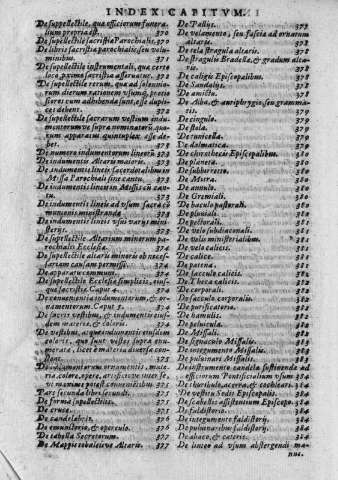 INDEX CAPITVM.
De suppellectile, quæ officiorum funera-
lium propria est. 370
De supellectile sacristiæ Parochialis. 370
De libris sacristiæ Parochialis, seu volu-
minibus. 371
De supellectile instrumentali, quæ certo
loco, proximo sacristiæ asseruatur. 371
De supellectile rerum, quæ ad solemnio-
rum dierum rationem
cum adhibendæ sunt, esse dupli-
ces debent. 372
De supellectile sacrarum vestium indu-
mentorum ve supra
rum apparatu quintuplici esse de-
bet. 373
De numero indumentorum lineorū 373
De indumentis Altaris maioris. 373
De indumentis lineis sacerdotalibus in
Missa Parochiali sine cantu. 373
De indumentis lineis in Missis cū can-
tu. 373
De indumentis lineis ad vsum sacra cō-
munionis ministranda. 373
De indumentis lineis vsui varijs mini-
sterijs. 373
De supellectile Altarium minorum pa-
rochialis Ecclesiæ. 373
De supellectile altaris minoris ob neces-
sariam causam permissi. 374
De apparatu communi. 374
De supellectile Ecclesiæ simplicis, eius-
que sacristiæ. Caput 4. 374
De ornamentorum indumentis, & or-
namentorum. Caput 5. 374
De sacris vestibus, & indumentis eius-
dem materiæ, & coloris. 374
De vestibus, ac que indumentis eiusdem
coloris, quæ sunt vestes supra enu-
meratæ, licet è materia diuersa con-
stent. 375
De indumentorum ornamentis, mate-
ria, colore, opere, artificio
vt maxime potest conuenientibus 375
Pars secunda libri secundi. 375
De forma supellectilis. 375
De cruce. 375
De candelis. 375
De emunctorio, & operculo. 376
De tabella Secretorum. 377
De Mappis tobaleis ve Altaris. 377
De Pallijs. 377
De velamento, seu fascia ad ornatum
altaris. 377
De tela stragula altaris. 377
De stragulis Bradellæ, & graduum alta-
ris. 377
De caligis Episcopalibus. 378
De Sandalijs. 378
De amictu. 378
De Alba, & auriphrygio, seu gramma-
tis. 378
De cingulo. 379
De stola. 379
De tunicella. 379
De dalmatica. 379
De chirothecis Episcopalibus. 380
De planeta. 380
De subbirretto. 380
De Mitra. 380
De annulo. 380
De Gremiali. 381
De baculo pastorali. 381
De pluuiali. 381
De pectorali. 381
De velo subdiaconali. 381
De velo ministerialibus. 381
De velo calicis. 382
De calice. 382
De patena. 382
De sacculo calicis. 382
De Theca calicis. 382
De corporali. 382
De sacculo corporalis. 382
De purificatorio. 383
De hamulis. 383
De peluicula. 383
De Missali. 383
De signaculo Missalis. 383
De integumento Missalis. 383
De puluinari Missalis. 383
De instrumento candelæ sustinendæ ad
officiorum Pontificalium vsum 383
De thuribulo, acerra, & cochleari. 383
De vestitu Sedis Episcopalis. 383
De scabellis assistentium Episcopo. 384
De faldistorio. 384
De integumento faldistorij. 384
De puluinaribus faldistorij. 384
De abaco, & cæteris. 384
De linteo ad vsum abstergendi ma-
nus.